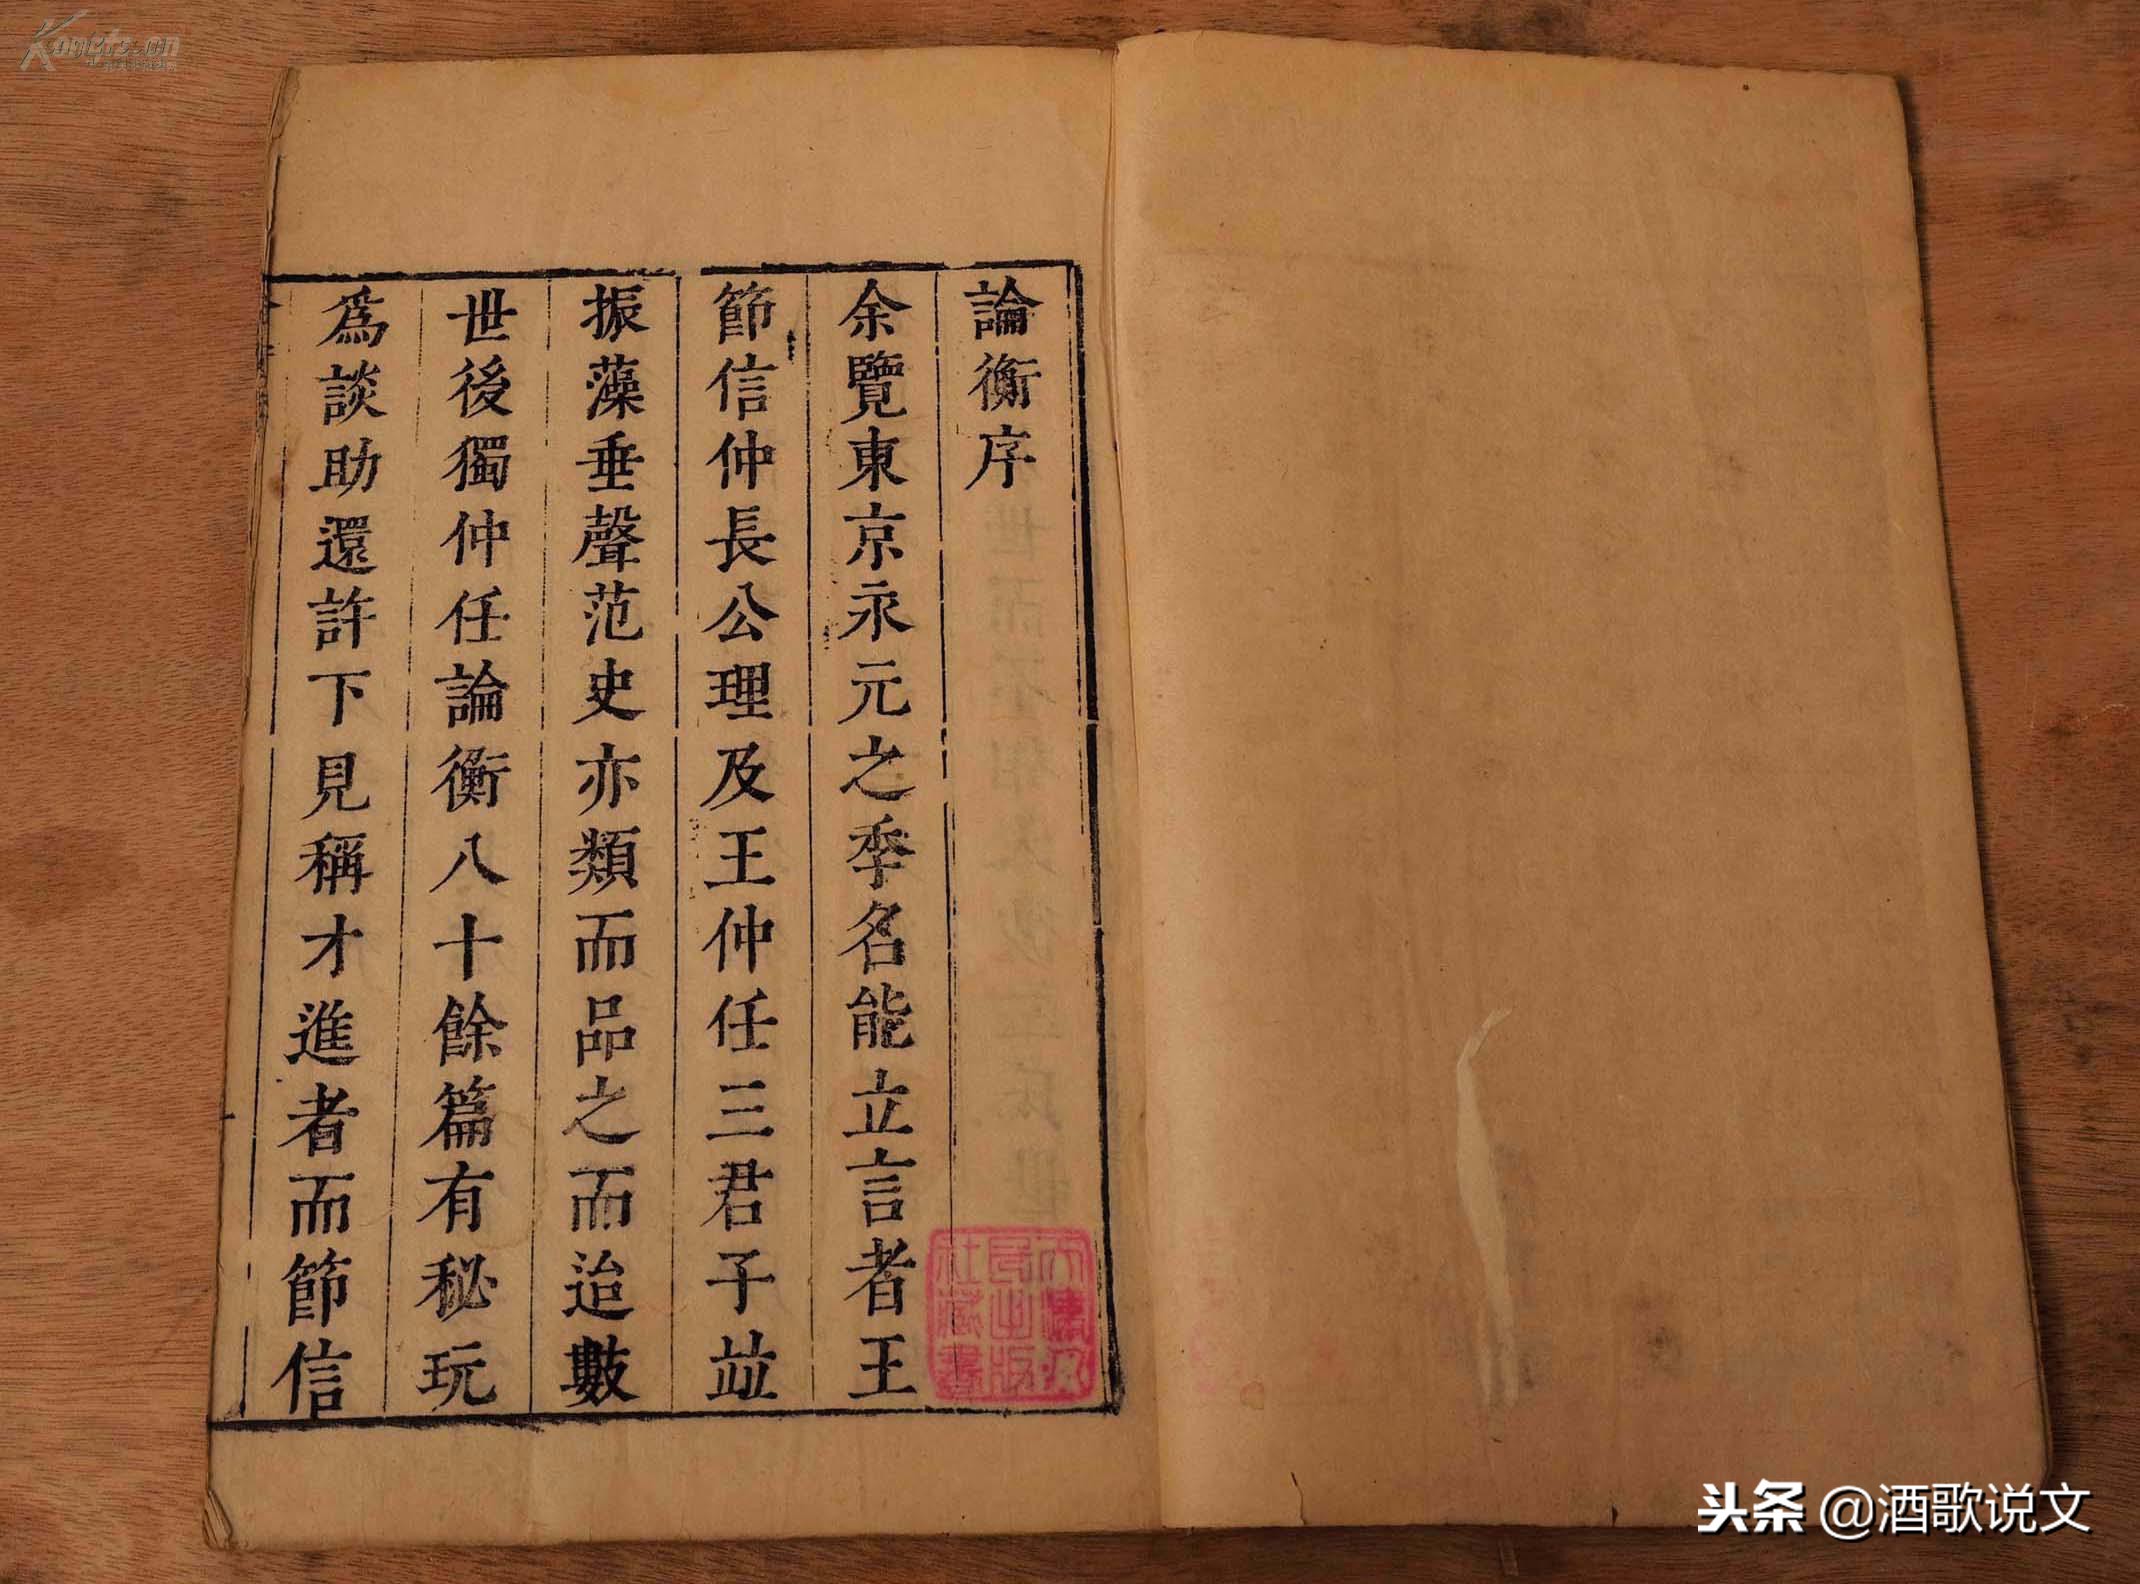 論衡序
余覽東京永元之季名能立言者王
節信仲長公理及王仲任三君子竝
振藻垂聲范史亦類而品之而迨數
世後獨仲任論衡八十餘篇有秘玩
爲談助還許下見稱才進者而節信
出版
社藏書
头条 @酒歌说文